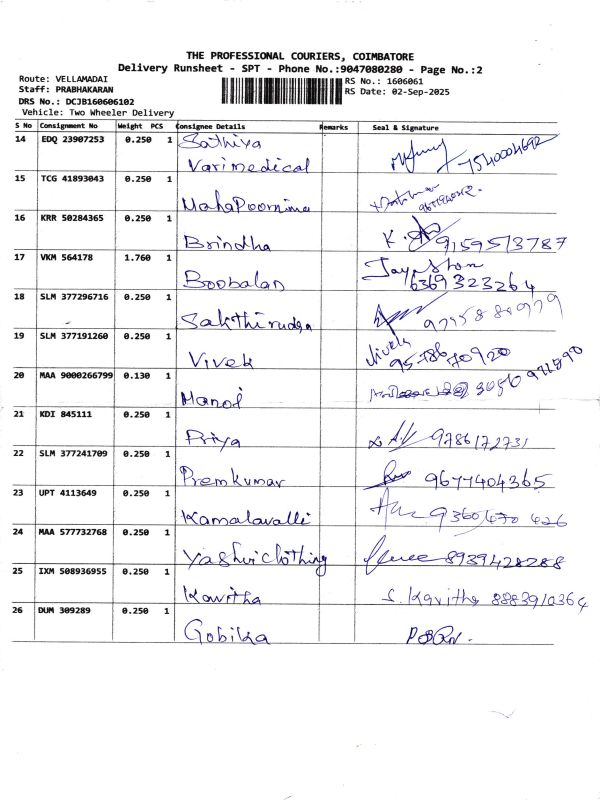 THE PROFESSIONAL COURIERS, COIMBATORE
Delivery Runsheet - SPT - Phone No.:9047080280 - Page No.:2
Route: VELLAMADAI RS No.: 1606061
Staff: PRABHAKARAN RS Date: 02-Sep-2025
DRS No.: DCJB160606102
Vehicle: Two Wheeler Delivery
S No Consignment No Weight PCS Consignee Details Remarks Seal & Signature
14 EDQ 23907253 0.250 1 Sathiya
Varimedical 7540004692
15 TCG 41893043 0.250 1
MahaPoornima
16 KRR 50284365 0.250 1
Brindha K. 9159513787
17 VKM 564178 1.760 1
Boobalan 6369323264
18 SLM 377296716 0.250 1
Sakthirudra
19 SLM 377191260 0.250 1
Vivek Vivek 9578670920
20 MAA 9000266799 0.130 1
Manoj
21 KDI 845111 0.250 1
Priya 9786172731
22 SLM 377241709 0.250 1
Premkumar 9677404365
23 UPT 4113649 0.250 1
Kamalavalli 9360470426
24 MAA 577732768 0.250 1
Yashviclothing 8939428288
25 IXM 508936955 0.250 1
Kavitha S. Kavitha 8883910364
26 DUM 309289 0.250 1
Gobika